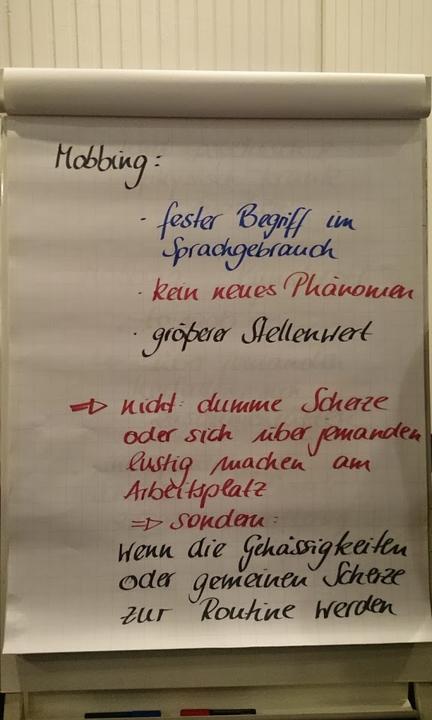 Mobbing:
· fester Begriff im
Sprachgebrauch
· kein neues Phänomen
· größerer Stellenwert
⇒ nicht: dumme Scherze
oder sich über jemanden
lustig machen am
Arbeitsplatz
⇒ sondern:
wenn die Gehässigkeiten
oder gemeinen Scherze
zur Routine werden